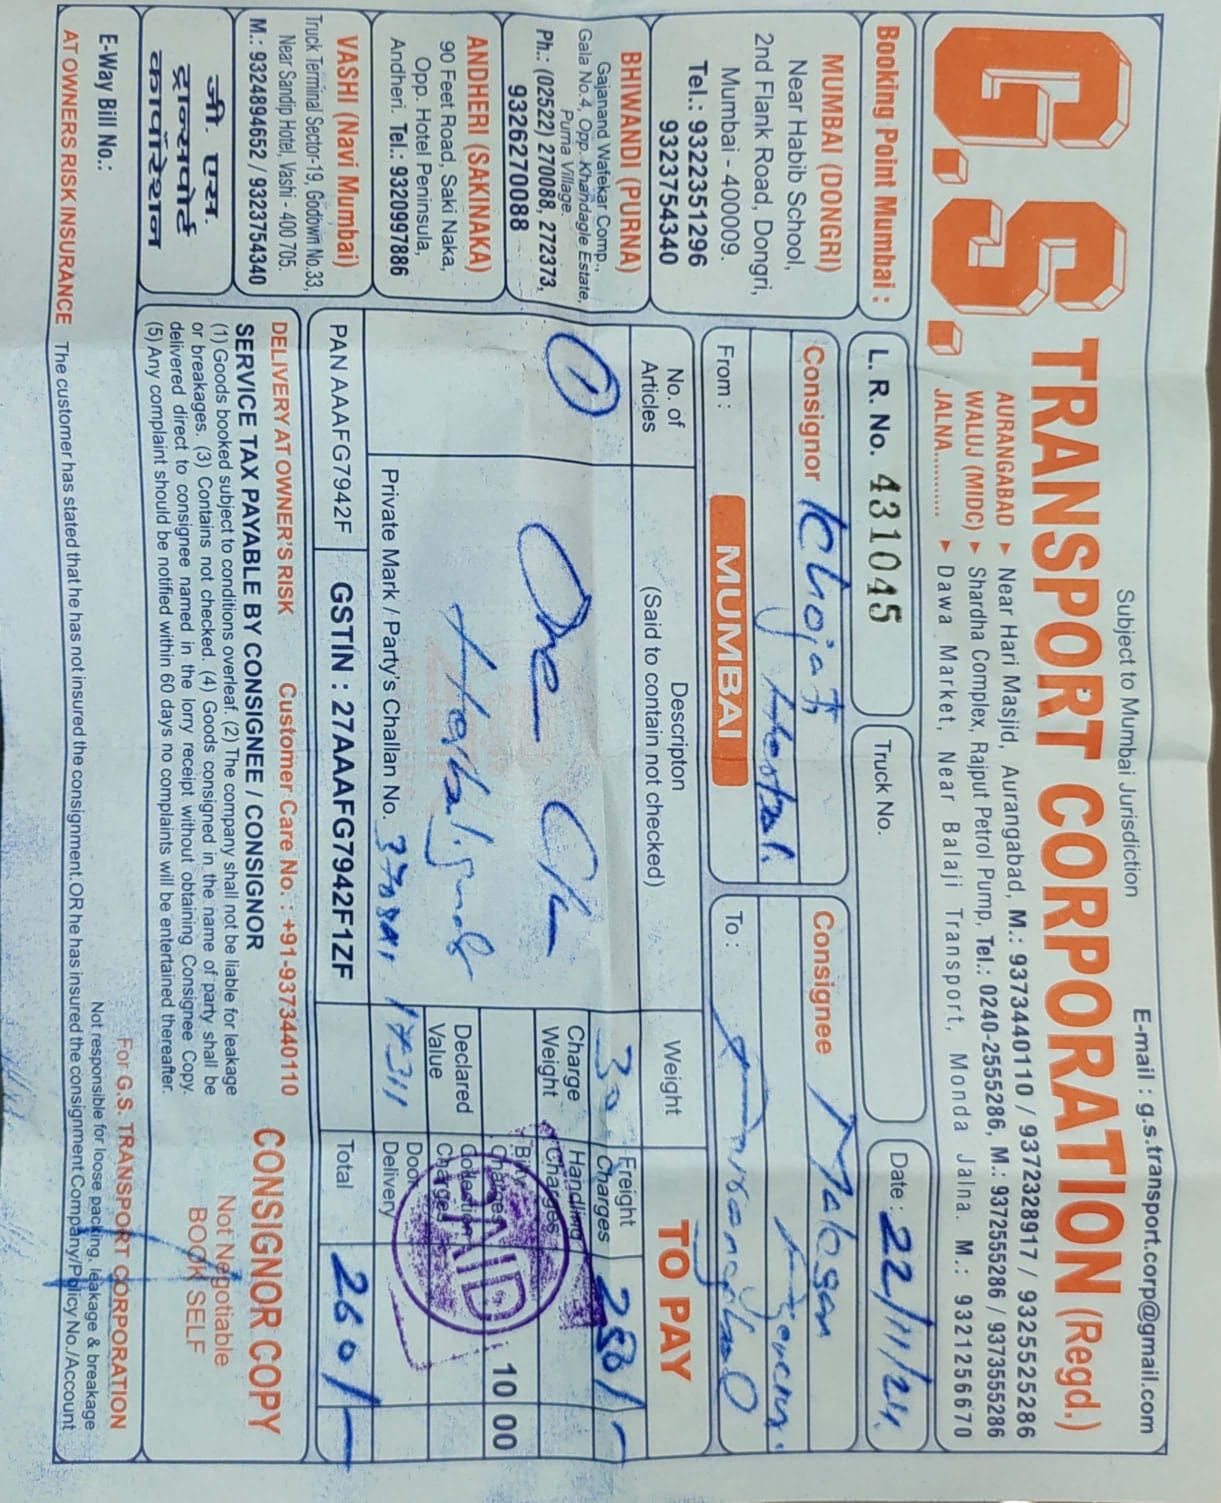 Subject to Mumbai Jurisdiction
E-mail : g.s.transport.corp@gmail.com
G.S. TRANSPORT CORPORATION (Regd.)
AURANGABAD ▸ Near Hari Masjid, Aurangabad, M.: 9373440110 / 9372328917 / 9325525286
WALUJ (MIDC) ▸ Shardha Complex, Rajput Petrol Pump, Tel.: 0240-2555286, M.: 9372555286 / 9373555286
JALNA............ ▸ Dawa Market, Near Balaji Transport, Monda Jalna. M.: 9321256670
Booking Point Mumbai :
L. R. No. 431045
Truck No.
Date : 22/11/24
MUMBAI (DONGRI)
Near Habib School,
2nd Flank Road, Dongri,
Mumbai - 400009.
Tel.: 9322351296
9323754340
BHIWANDI (PURNA)
Gajanand Wafekar Comp.,
Gala No.4, Opp. Khandagle Estate,
Purna Village.
Ph.: (02522) 270088, 272373,
9326270088
ANDHERI (SAKINAKA)
90 Feet Road, Saki Naka,
Opp. Hotel Peninsula,
Andheri. Tel.: 9320997886
VASHI (Navi Mumbai)
Truck Terminal Sector-19, Godown No.33,
Near Sandip Hotel, Vashi - 400 705.
M.: 9324894652 / 9323754340
जी. एस.
ट्रान्सपोर्ट
कार्पोरेशन
Consignor
Consignee
Agency
From : MUMBAI
To :
No. of Articles
Descripton
(Said to contain not checked)
Weight
TO PAY
1
One
30
Freight Charges 250/-
Charge Weight
Handling Charges
Bilty Charges 10 00
Declared Value
Collection Charges
Door Delivery
PAID
Private Mark / Party's Challan No.
PAN AAAFG7942F
GSTIN : 27AAAFG7942F1ZF
Total 260/-
DELIVERY AT OWNER'S RISK
Customer Care No. : +91-9373440110
SERVICE TAX PAYABLE BY CONSIGNEE / CONSIGNOR
(1) Goods booked subject to conditions overleaf. (2) The company shall not be liable for leakage
or breakages. (3) Contains not checked. (4) Goods consigned in the name of party shall be
delivered direct to consignee named in the lorry receipt without obtaining Consignee Copy.
(5) Any complaint should be notified within 60 days no complaints will be entertained thereafter.
CONSIGNOR COPY
Not Negotiable
BOOK SELF
For G.S. TRANSPORT CORPORATION
E-Way Bill No.:
Not responsible for loose packing, leakage & breakage
AT OWNERS RISK INSURANCE The customer has stated that he has not insured the consignment OR he has insured the consignment Company/Policy No./Account